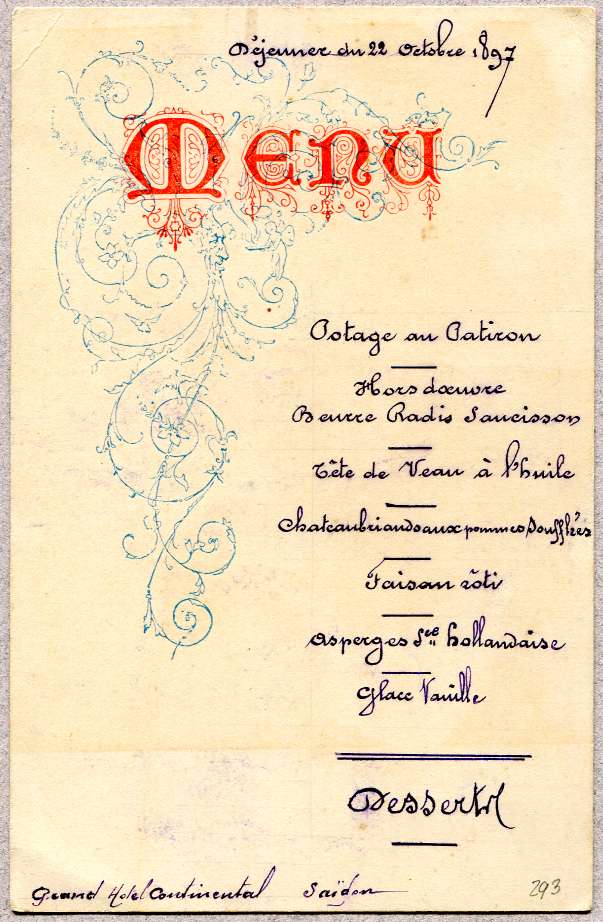 Déjeuner du 22 Octobre 1897
Menu
Potage au Patiron
Hors d'œuvre
Beurre Radis Saucisson
Tête de Veau à l'huile
Chateaubriands aux pommes Soufflées
Faisan rôti
Asperges Sce hollandaise
Glace Vanille
Desserts
Grand Hotel Continental Saïgon
293